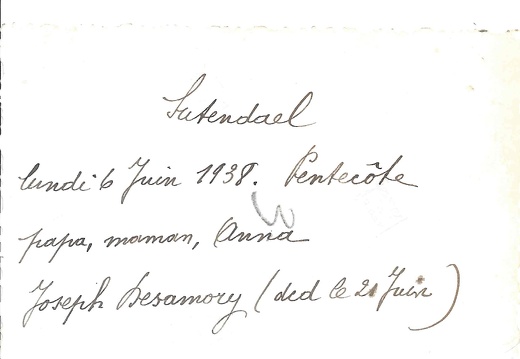 Sutendael
lundi 6 Juin 1938. Pentecôte
papa, maman, Anna
Joseph Desamory (ded le 21 Juin)